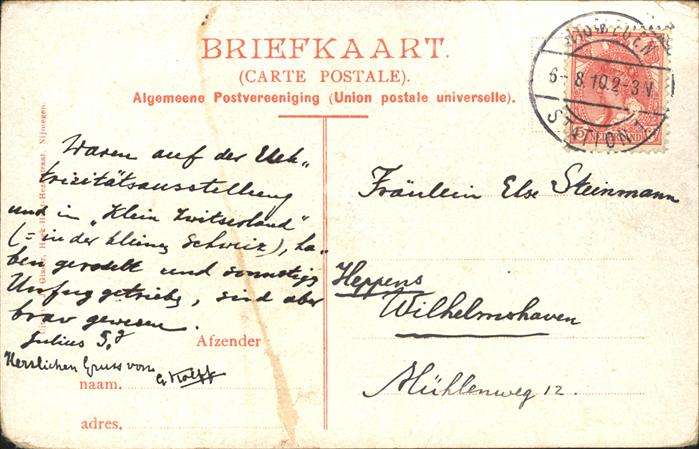 BRIEFKAART.
(CARTE POSTALE).
Algemeene Postvereeniging (Union postale universelle).
6- 8.10.2-3V
STATION
Waren auf der Elek-
trizitätsausstellung
und in "Klein Zwitserland"
(= in der kleinen Schweiz), ha-
ben gerodelt und sonstig
Unfug getrieben, sind aber
brav gewesen.
Julius
Herzlichen Gruss von
G. Kolff
Afzender
naam.
adres.
Fräulein Else Steinmann
Heppens
Wilhelmshaven
Mühlenweg 12.
Nijmegen.